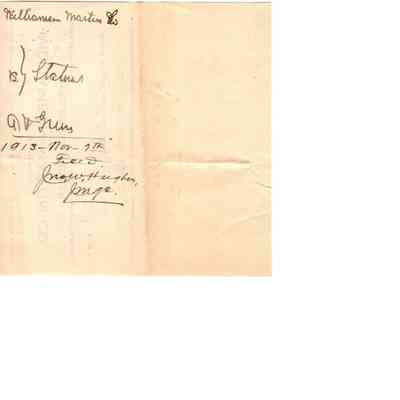 Williamson Martin & Co
vs } Status
A D Green
1913 - Nov - 7th
Filed.
Jno W. Hughes,
Judge.